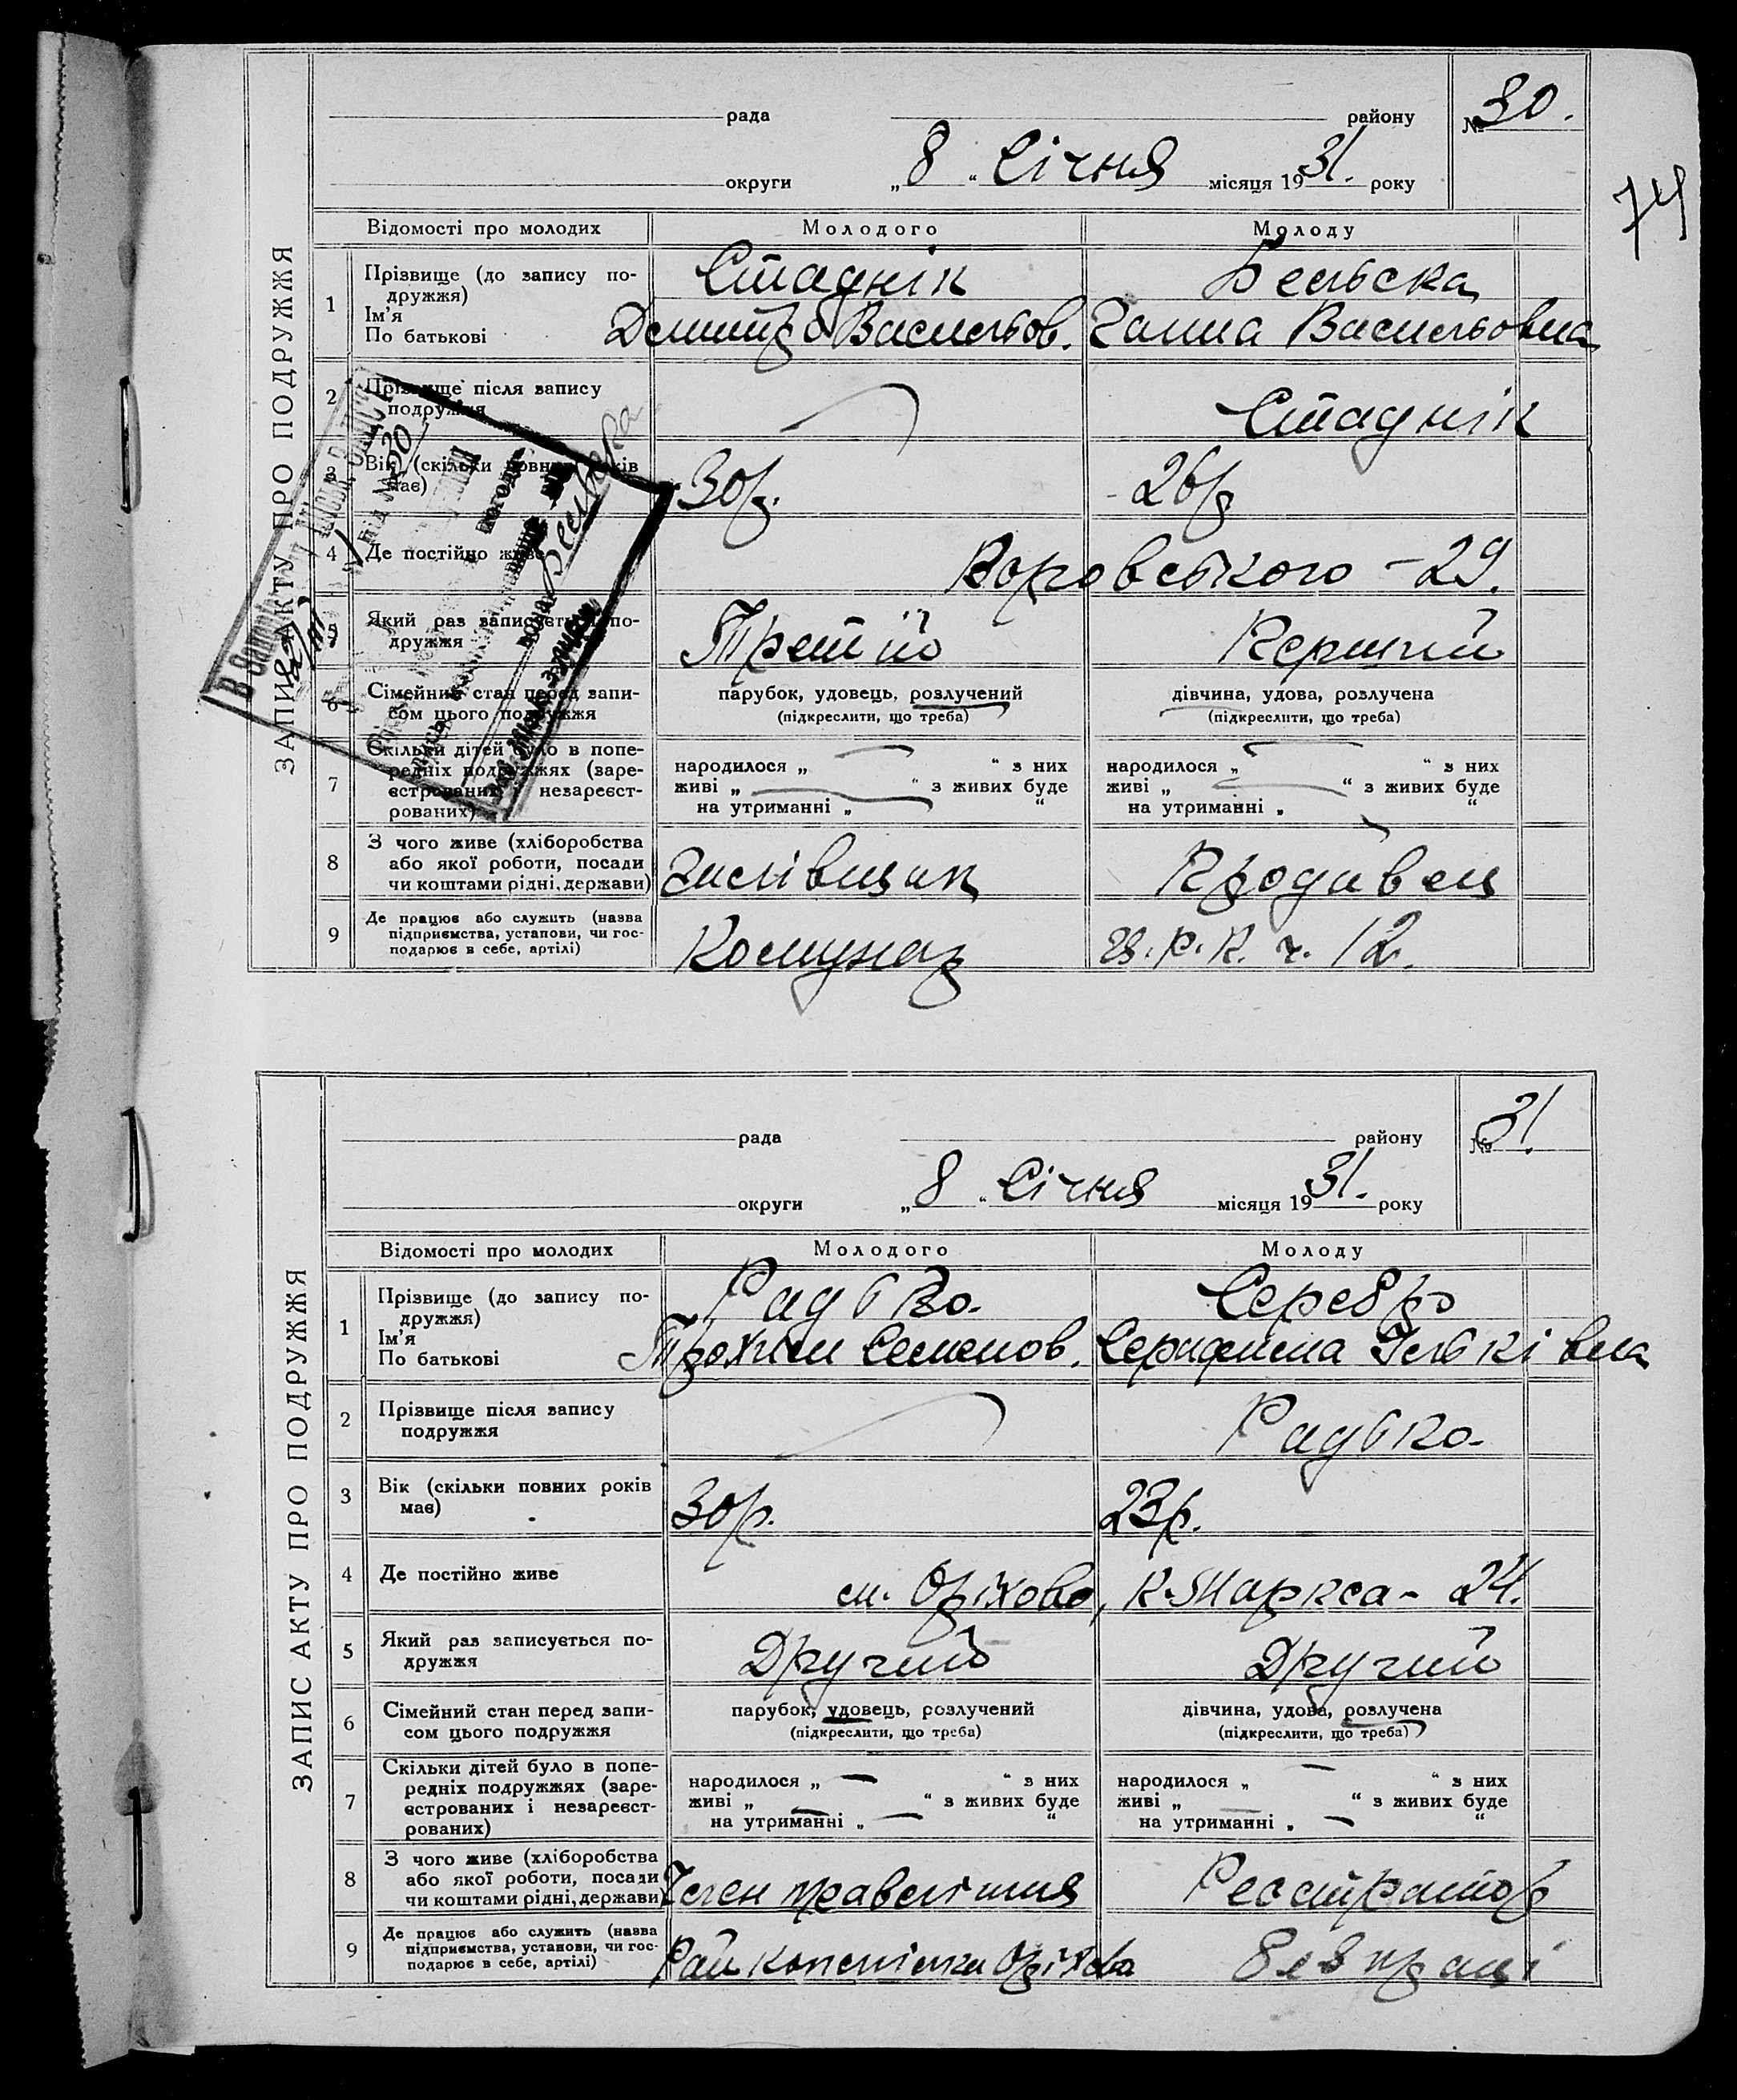 74
ЗАПИС АКТУ ПРО ПОДРУЖЖЯ
рада району № 30.
округи „8“ Січня місяця 1931. року
Відомості про молодих Молодого Молоду
1 Прізвище (до запису по-
дружжя)
Ім'я
По батькові
Стаднік Бельска
Дмитро Васильов. Ганна Васильовна
2 Прізвище після запису
подружжя
Стаднік
3 Вік (скільки повних років
має)
30р. 26р
4 Де постійно живе
Воровського – 29.
5 Який раз записується по-
дружжя
Третій Перший
6 Сімейний стан перед запи-
сом цього подружжя
парубок, удовець, розлучений дівчина, удова, розлучена
(підкреслити, що треба) (підкреслити, що треба)
7 Скільки дітей було в попе-
редніх подружжях (заре-
єстрованих і незареєст-
рованих)
народилося „ “ з них народилося „ “ з них
живі „ “ з живих буде живі „ “ з живих буде
на утриманні „ “ на утриманні „ “
8 З чого живе (хліборобства
або якої роботи, посади
чи коштами рідні, держави)
Продавец
9 Де працює або служить (назва
підприємства, установи, чи гос-
подарює в себе, артілі)
Комунар ч. 12.
під № 30
ЗАПИС АКТУ ПРО ПОДРУЖЖЯ
рада району № 31.
округи „8“ Січня місяця 1931. року
Відомості про молодих Молодого Молоду
1 Прізвище (до запису по-
дружжя)
Ім'я
По батькові
Радько. Серебро
Трохим Семенов. Серафима Ільківна
2 Прізвище після запису
подружжя
Радько.
3 Вік (скільки повних років
має)
30р. 23р.
4 Де постійно живе
м. Оріхово, К-Маркса – 24.
5 Який раз записується по-
дружжя
Другий Другий
6 Сімейний стан перед запи-
сом цього подружжя
парубок, удовець, розлучений дівчина, удова, розлучена
(підкреслити, що треба) (підкреслити, що треба)
7 Скільки дітей було в попе-
редніх подружжях (заре-
єстрованих і незареєст-
рованих)
народилося „ — “ з них народилося „ — “ з них
живі „ — “ з живих буде живі „ — “ з живих буде
на утриманні „ — “ на утриманні „ — “
8 З чого живе (хліборобства
або якої роботи, посади
чи коштами рідні, держави)
Член правління Реєстратор
9 Де працює або служить (назва
підприємства, установи, чи гос-
подарює в себе, артілі)
Без праці